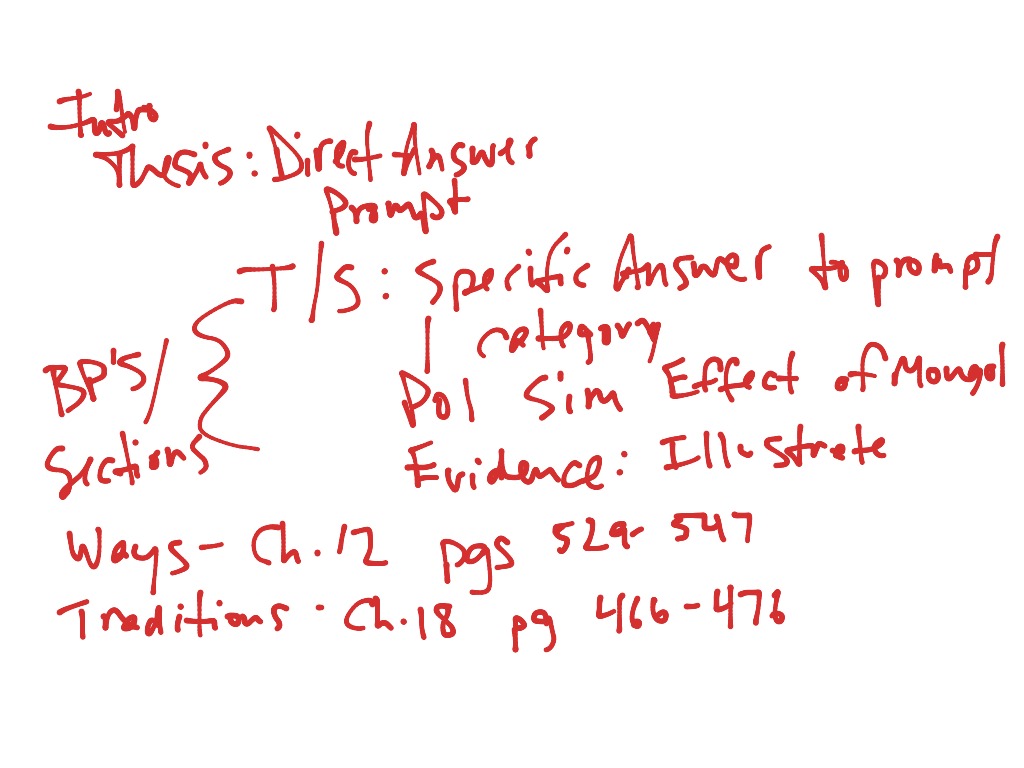 Intro
Thesis: Direct Answer
Prompt
T/S: Specific Answer to prompt
category
BP's/
Pol Sim Effect of Mongol
Sections
Evidence: Illustrate
Ways - Ch. 12 pgs 529-547
Traditions - Ch. 18 pg 466-476